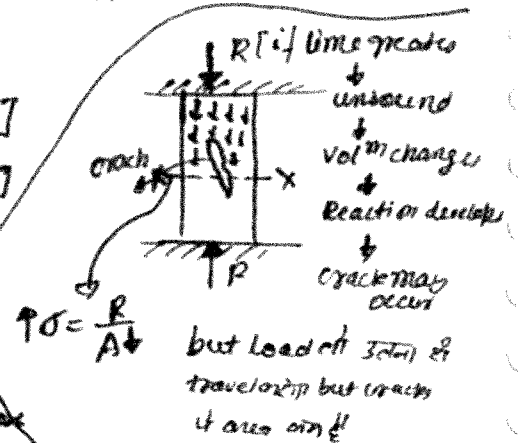 ]
]
R [if lime greater
↓
unsound
↓
Volᵐ change
↓
Reaction develops
↓
crack may
occur
crack
X X
R
↑σ = R/A↓
but Load तो उतना ही
travel but crack
area